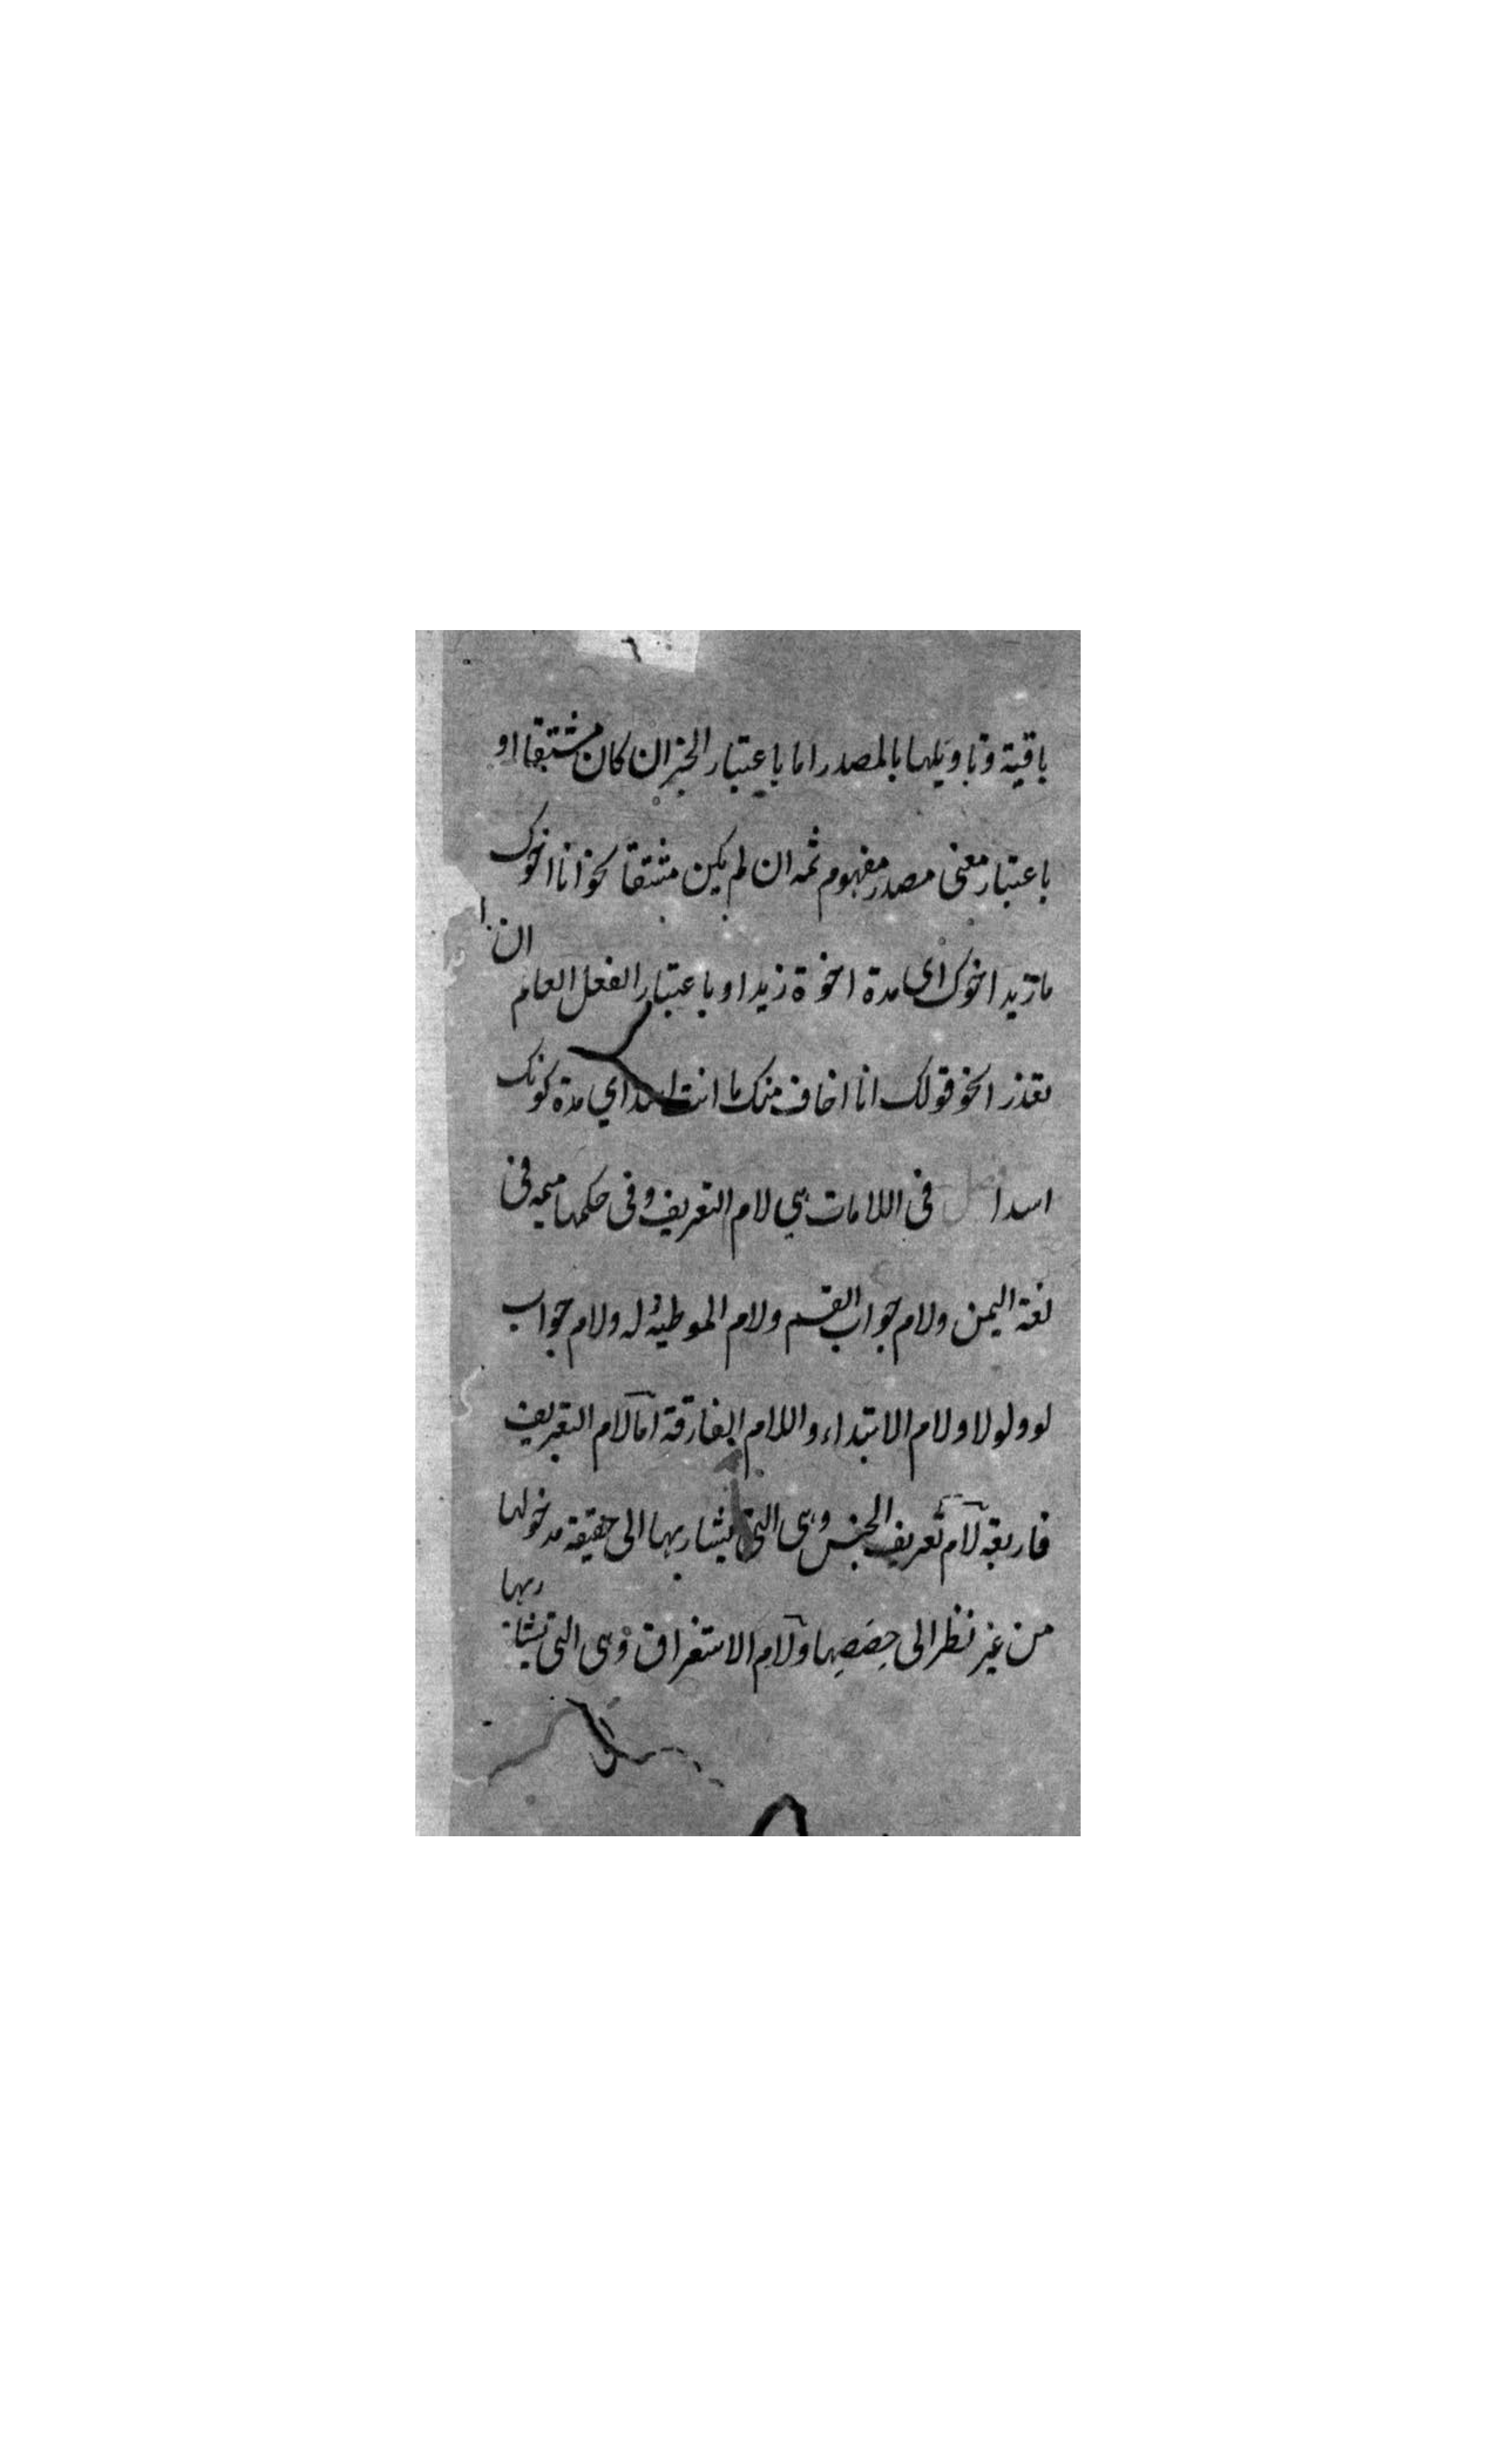 باقية وتاويلها بالمصدر اما باعتبار الخبر ان كان مشتقا او
باعتبار معنى مصدر مفهوم ثمه ان لم يكن مشتقا نحو انا اخوك
ما زيد اخوك اى مدة اخوة زيد او باعتبار الفعل العام ان
تعذر انحو قولك انا اخاف منك ما انت اسد اي مدة كونك
اسدا فصل فى اللامات هي لام التعريف وفى حكمها ميمه فى
لغة اليمن ولام جواب القسم ولام الموطيه له ولام جواب
لو ولولا ولام الابتداء واللام الفارقة اما لام التعريف
فاربعة لام تعريف الجنس وهى التى يشار بها الى حقيقة مدخولها
من غير نظر الى حصصها ولام الاستغراق وهى التى تشار بها